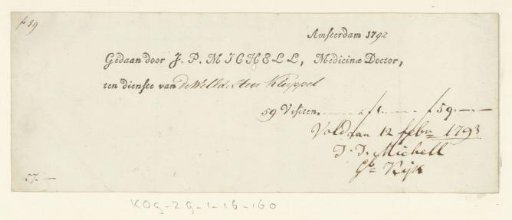 f 59
Amsterdam 1792
Gedaan door J. P. MICHELL, Medicinæ Doctor,
ten dienste van De Weld. Heer
59 Visiten. - - - à f 1. - - - f 59 - -
Voldaan 12 febr 1793
J. P. Michell
KOG-ZG-1-18-160